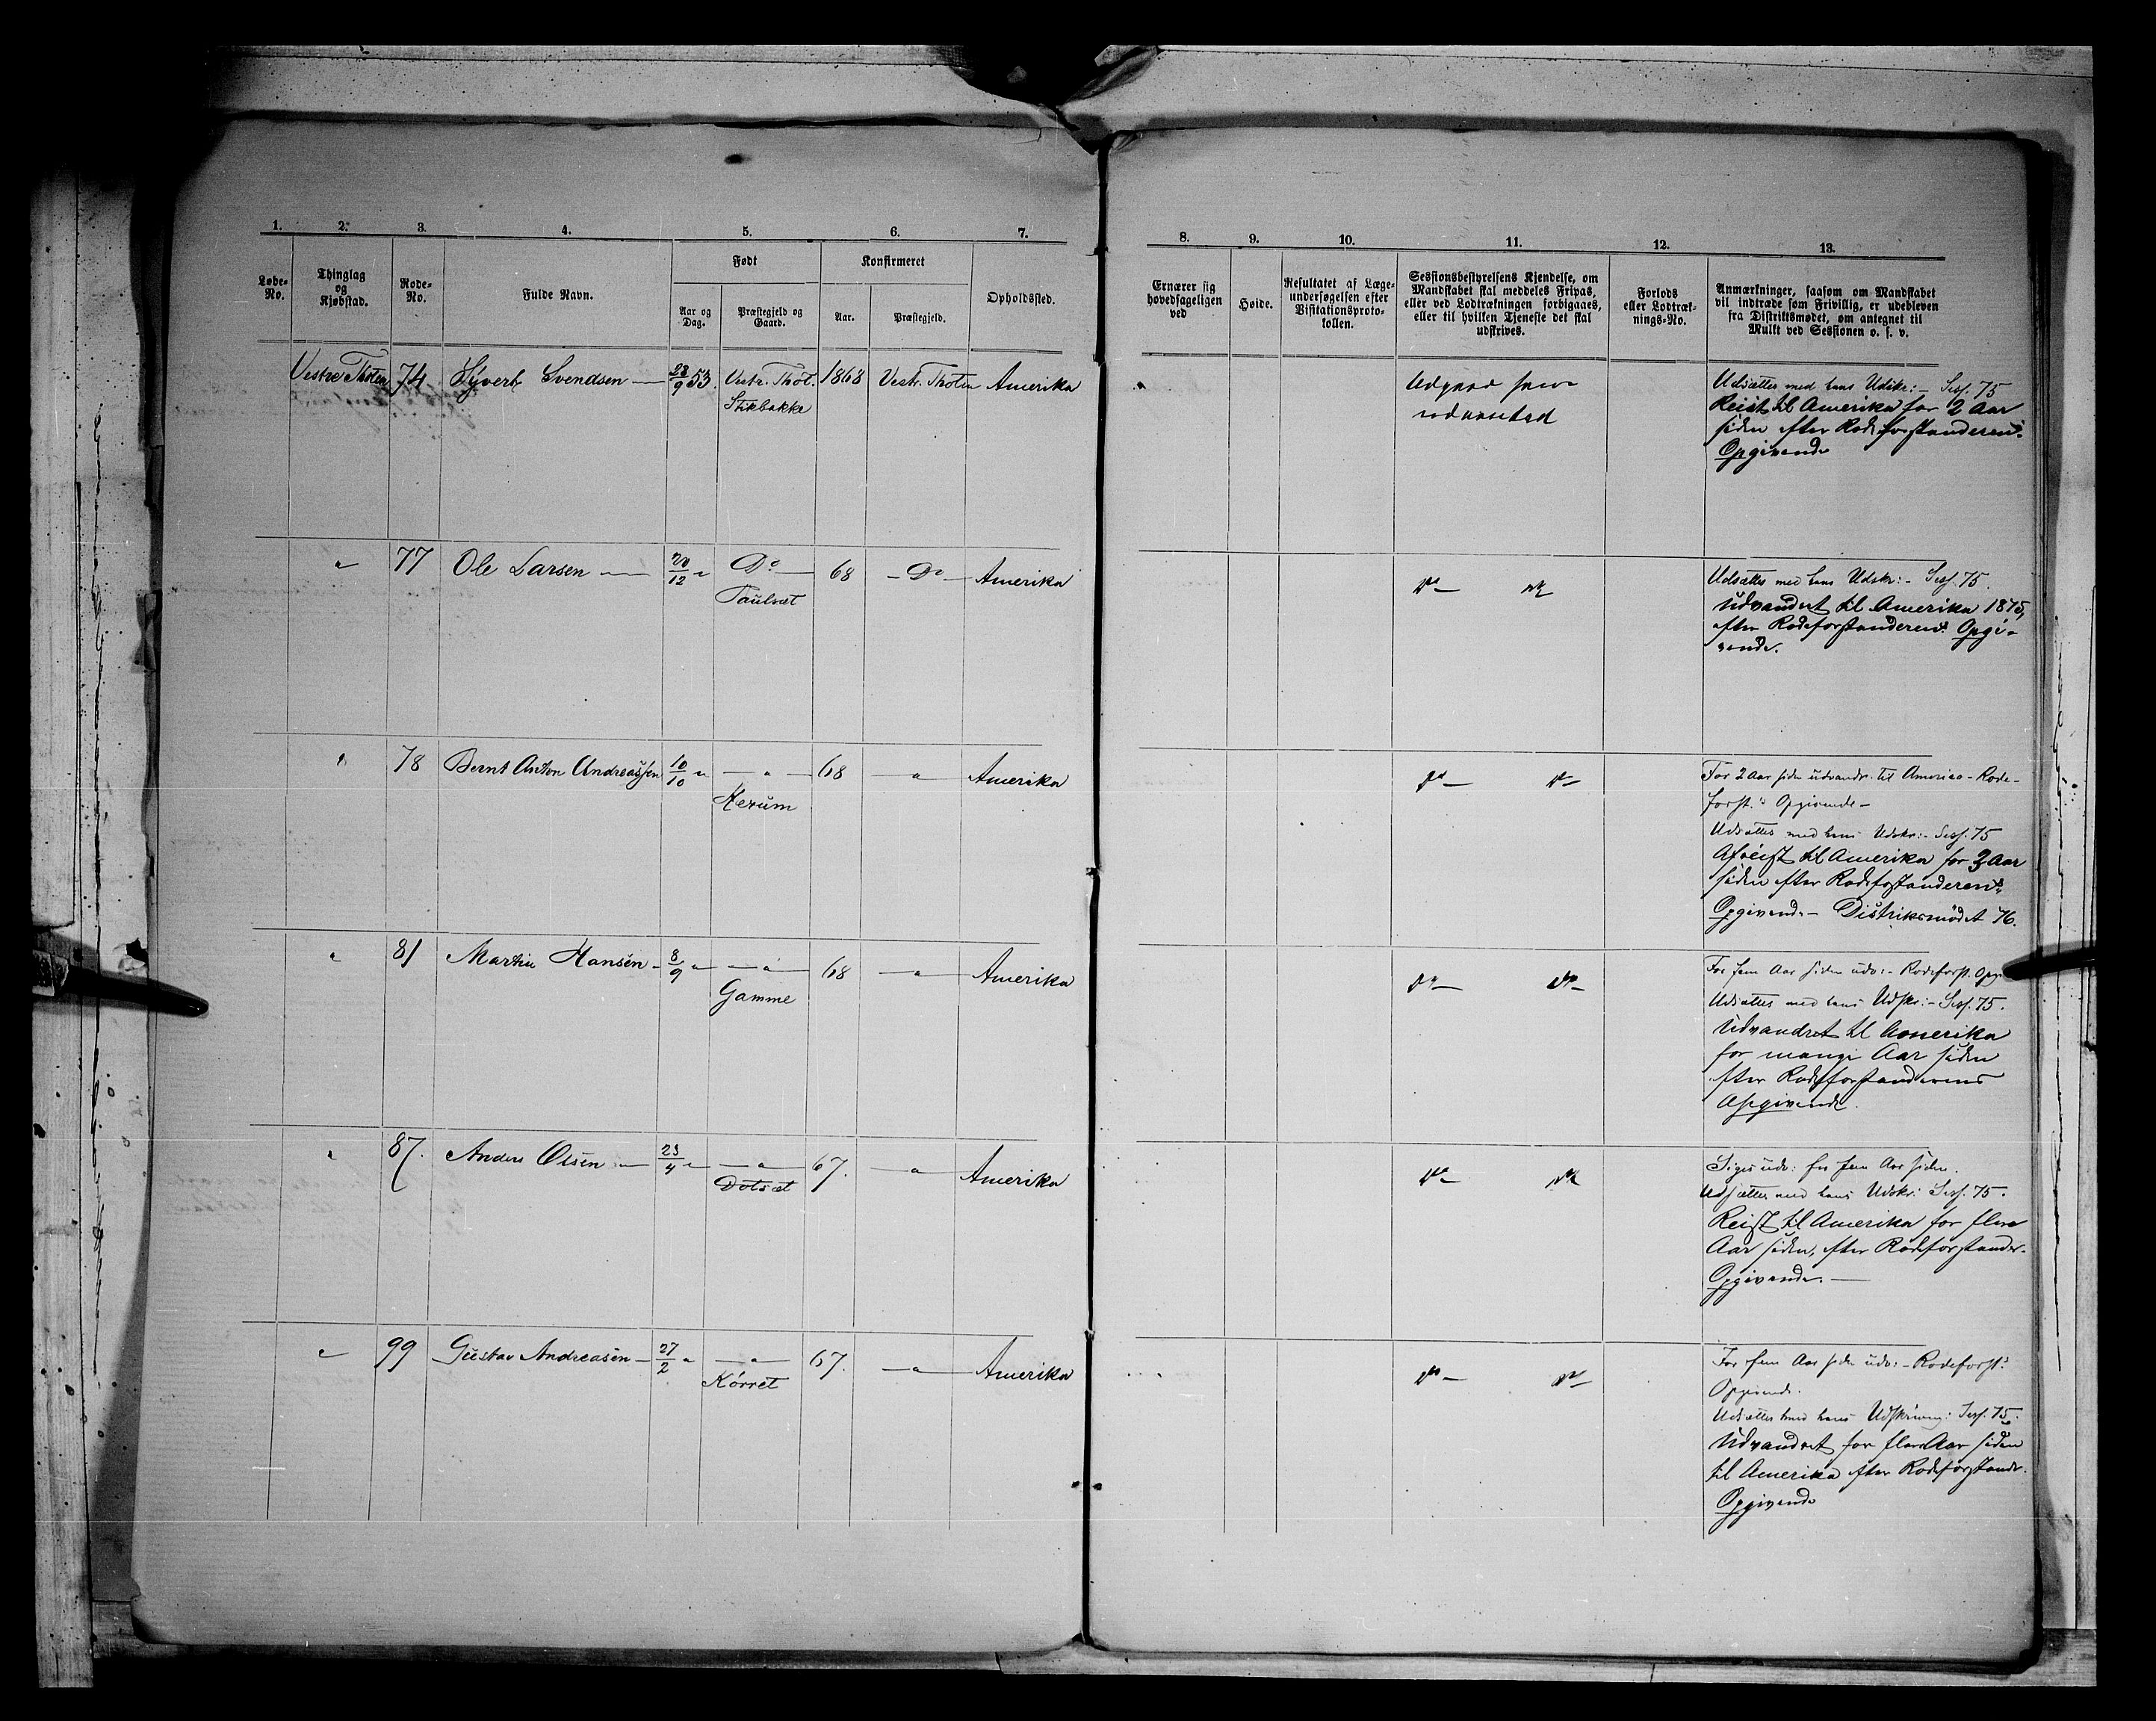 1. 2. 3. 4. 5. 6. 7.
Løbe-No. Thinglag og Kjøbstad. Rode-No. Fulde Navn. Født Konfirmeret Opholdssted.
Aar og Dag. Præstegjeld og Gaard. Aar. Præstegjeld.
8. 9. 10. 11. 12. 13.
Ernærer sig hovedsageligen ved
Høide.
Resultatet af Læge-
undersøgelsen efter
Visitationsproto-
kollen.
Sessionsbestyrelsens Kjendelse, om
Mandskabet skal meddeles Fripas,
eller ved Lodtrækningen forbigaaes,
eller til hvilken Tjeneste det skal
udskrives.
Forlods
eller Lodtræk-
nings-No.
Anmærkninger, saasom om Mandskabet
vil indtræde som Frivillig, er udebleven
fra Distriktsmødet, om antegnet til
Mulkt ved Sessionen o. s. v.
Vestre Thoten 74 Syvert Svendsen — 23/9 53. Vestr. Thot. 1868 Vestr. Thoten Amerika
Stikbakke
Udgaar som
udvandred
Udsættes med hans Udskr:- Sess. 75
Reist til Amerika for 2 Aar
siden efter Rodeforstanderens
Opgivende
" 77 Ole Larsen — 20/12 " Do — 68 — Do — Amerika
Paulsæt
Do — Do
Udsættes med hans Udskr:- Sess. 75.
Udvandret til Amerika 1875,
efter Rodeforstanderens Opgi-
vende.
" 78 Bernt Anton Andreassen 10/10 " — " — 68 — " — Amerika
Hexum
Do — Do —
For 2 Aar siden udvandr. til America - Rode-
forst.s Opgivende -
Udsættes med hans Udskr:- Sess. 75
Afreist til Amerika for 3 Aar
siden efter Rodeforstanderens
Opgivende - Distriksmødet 76.
" 81 Martin Hansen - 8/9 " — " — 68 — " — Amerika
Gamme
Do — Do —
For fem Aar siden udv:- Rodeforst. Opg
Udsættes med hans Udskr:- Sess. 75.
Udvandret til Amerika
for mange Aar siden
efter Rodeforstanderens
Opgivende.
" 87. Anders Olsen — 23/4 " — " — 67. — " — Amerika
Dotsæt
Do — Do
Siges udv: for fem Aar siden.
Udsættes med hans Udskr: Sess. 75.
Reist til Amerika for flere
Aar siden, efter Rodeforstander-
Opgivende. —
" 99 Gustav Andreasen - 27/2 " — " — 67. — " — Amerika
Kørret
Do — Do —
For fem Aar siden udv:- Rodeforst.s
Opgivende.
Udsættes med hans Udskrivning: Sess. 75.
Udvandret for flere Aar siden
til Amerika efter Rodeforstander.
Opgivende